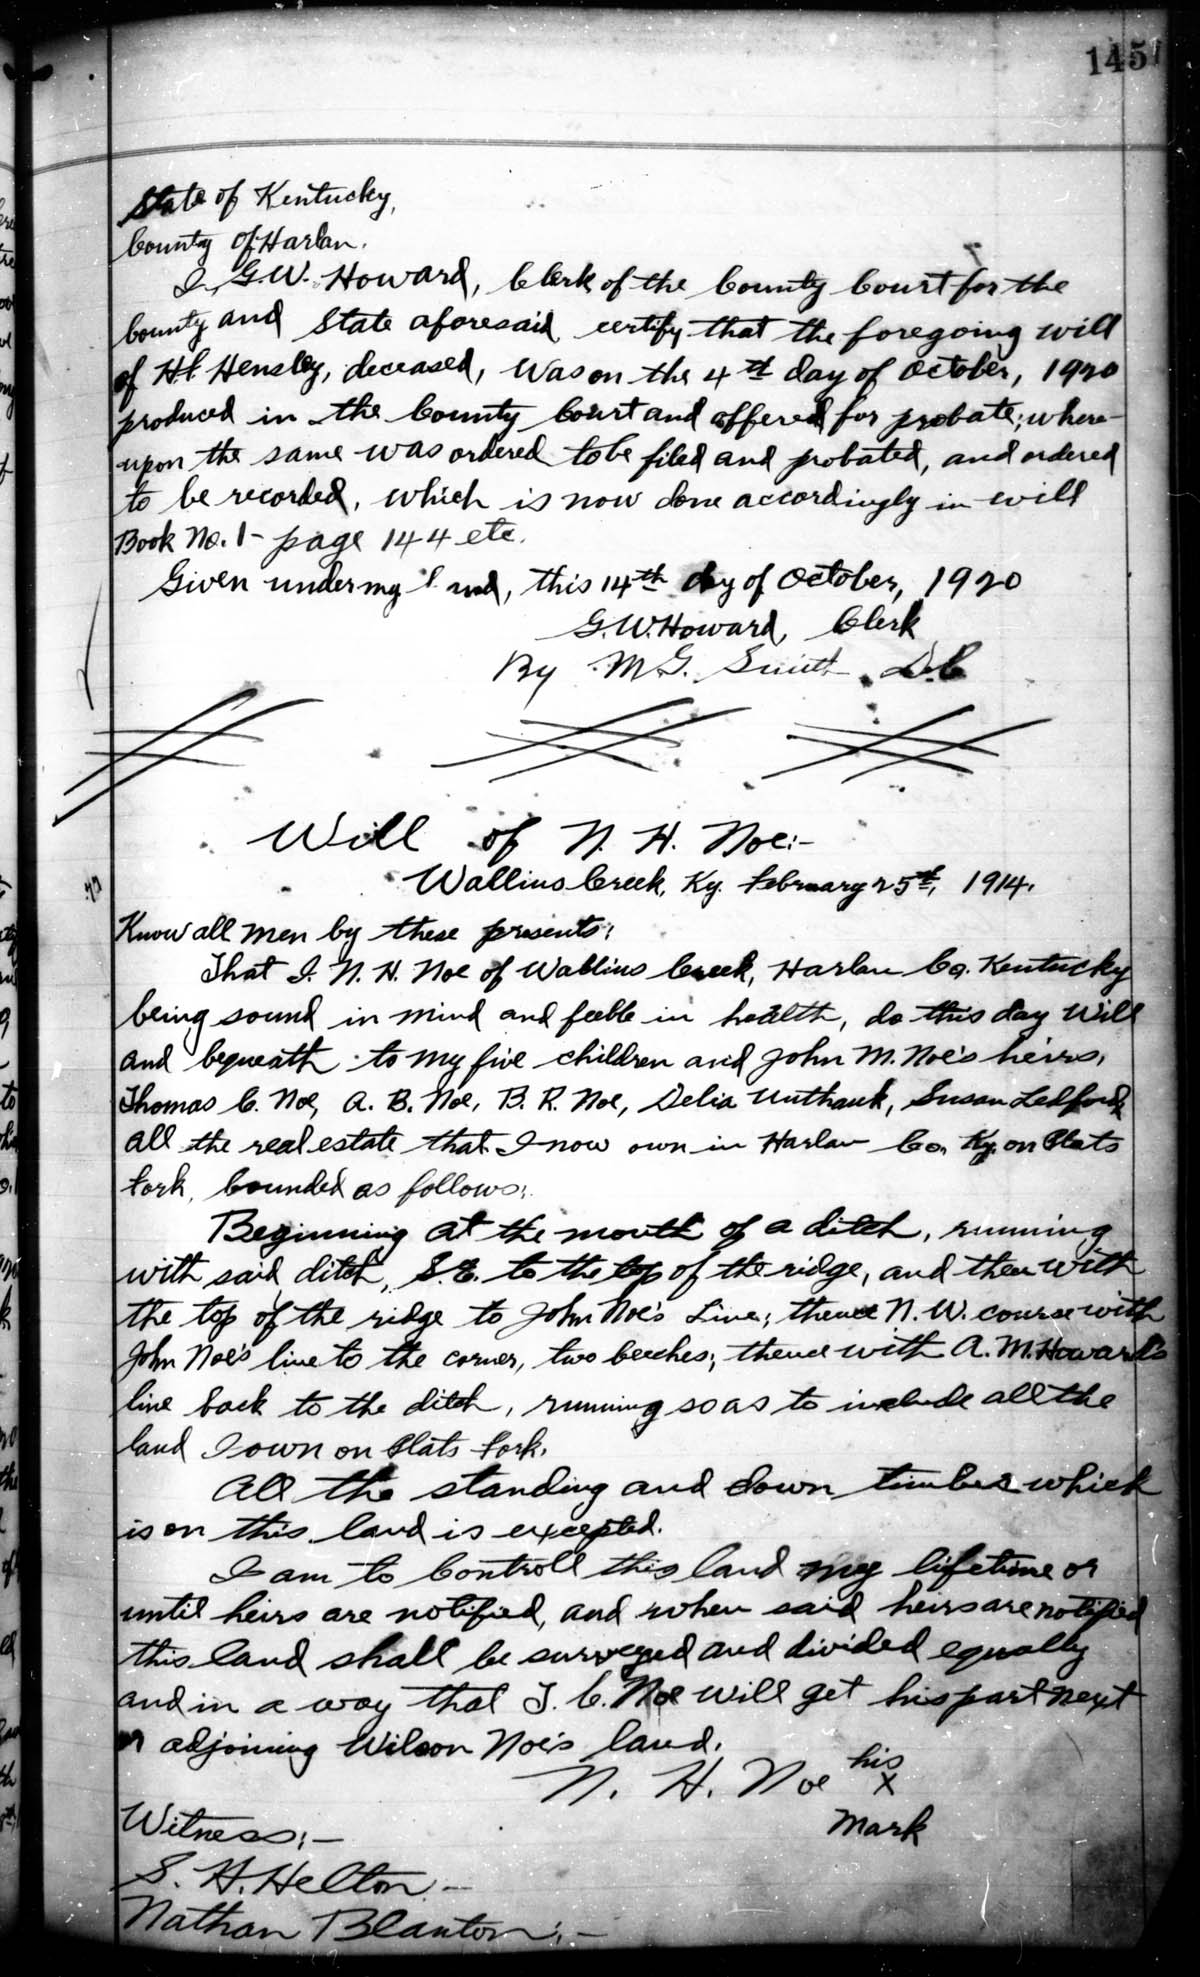 145
State of Kentucky,
County of Harlan.
I, G.W. Howard, Clerk of the County Court for the
County and State aforesaid certify that the foregoing will
of Hensley, deceased, was on the 4th day of October, 1920
produced in the County Court and offered for probate; where-
upon the same was ordered to be filed and probated, and ordered
to be recorded, which is now done accordingly in will
Book No. 1- page 144 etc.
Given under my hand, this 14th day of October, 1920
G.W. Howard, Clerk
By M.G. Smith D.C
Will of N. H. Noe:-
Wallins Creek, Ky. February 25th, 1914.
Know all men by these presents:
That I. N. H. Noe of Wallins Creek, Harlan Co. Kentucky
being sound in mind and feeble in health, do this day will
and bequeath to my five children and John M. Noe's heirs,
Thomas C. Noe, A. B. Noe, B. R. Noe, Delia Unthank, Susan Ledford,
all the real estate that I now own in Harlan Co. Ky. on Plats
Fork, bounded as follows:
Beginning at the mouth of a ditch, running
with said ditch, S.E. to the top of the ridge, and then with
the top of the ridge to John Noe's Line; thence N. W. course with
John Noe's line to the corner, two beeches; thence with A. M. Howard's
line back to the ditch, running so as to include all the
land I own on Plats Fork.
All the standing and down timber which
is on this land is excepted.
I am to Controll this land my lifetime or
until heirs are notified, and when said heirs are notified
this land shall be surveyed and divided equally
and in a way that T. C. Noe will get his part next
or adjoining Wilson Noe's land.
N. H. Noe his
x
Mark
Witness:-
S. H. Helton.-
Nathan Blanton:-